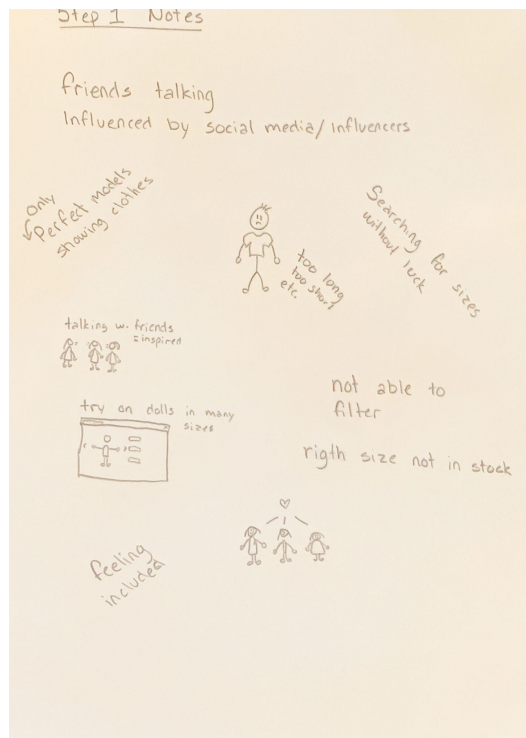 Step 1 Notes
friends talking
Influenced by social media/Influencers
Only
Perfect models
showing clothes
Searching for sizes
without luck
too long
too short
etc.
talking w. friends
= inspired
try on dolls in many
sizes
not able to
filter
rigth size not in stock
feeling
included